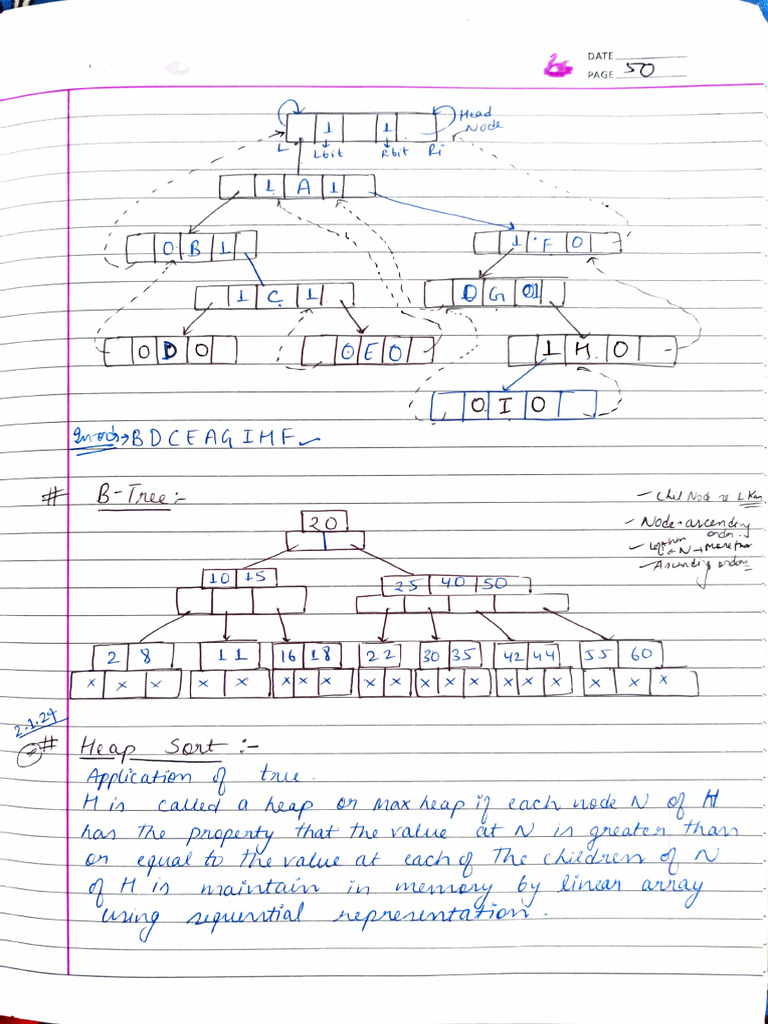 DATE
PAGE 50
Head Node
1 1
L Lbit Rbit Ri
1 A 1
0 B 1
1 F 0
1 C 1
0 G 1
0 D 0
0 E 0
1 H 0
0 I 0
Inorder → B D C E A G I H F
# B-Tree :-
20
Node → ascending order
10 15
25 40 50
Ascending order
2 8 11 16 18 22 30 35 42 44 55 60
x x x x x x x x x x x x x x x x x x x
2.1.24
# Heap Sort :-
Application of true.
H is called a heap or max heap if each node N of H
has the property that the value at N is greater than
or equal to the value at each of The children of N
of H is maintain in memory by linear array
using sequential representation.